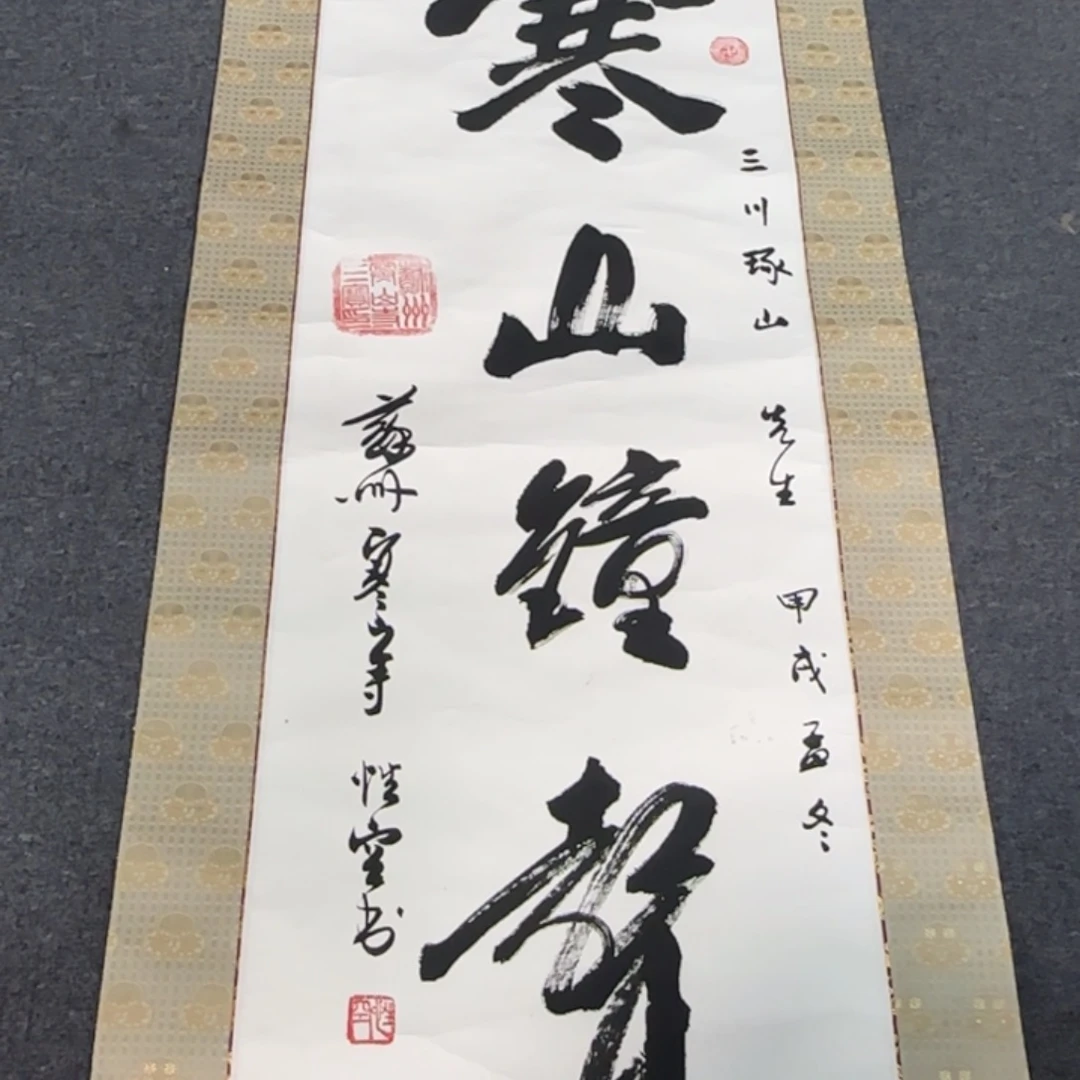 三川琢山 先生 甲戌孟冬
寒山鐘聲
蘇州寒山寺 性空书